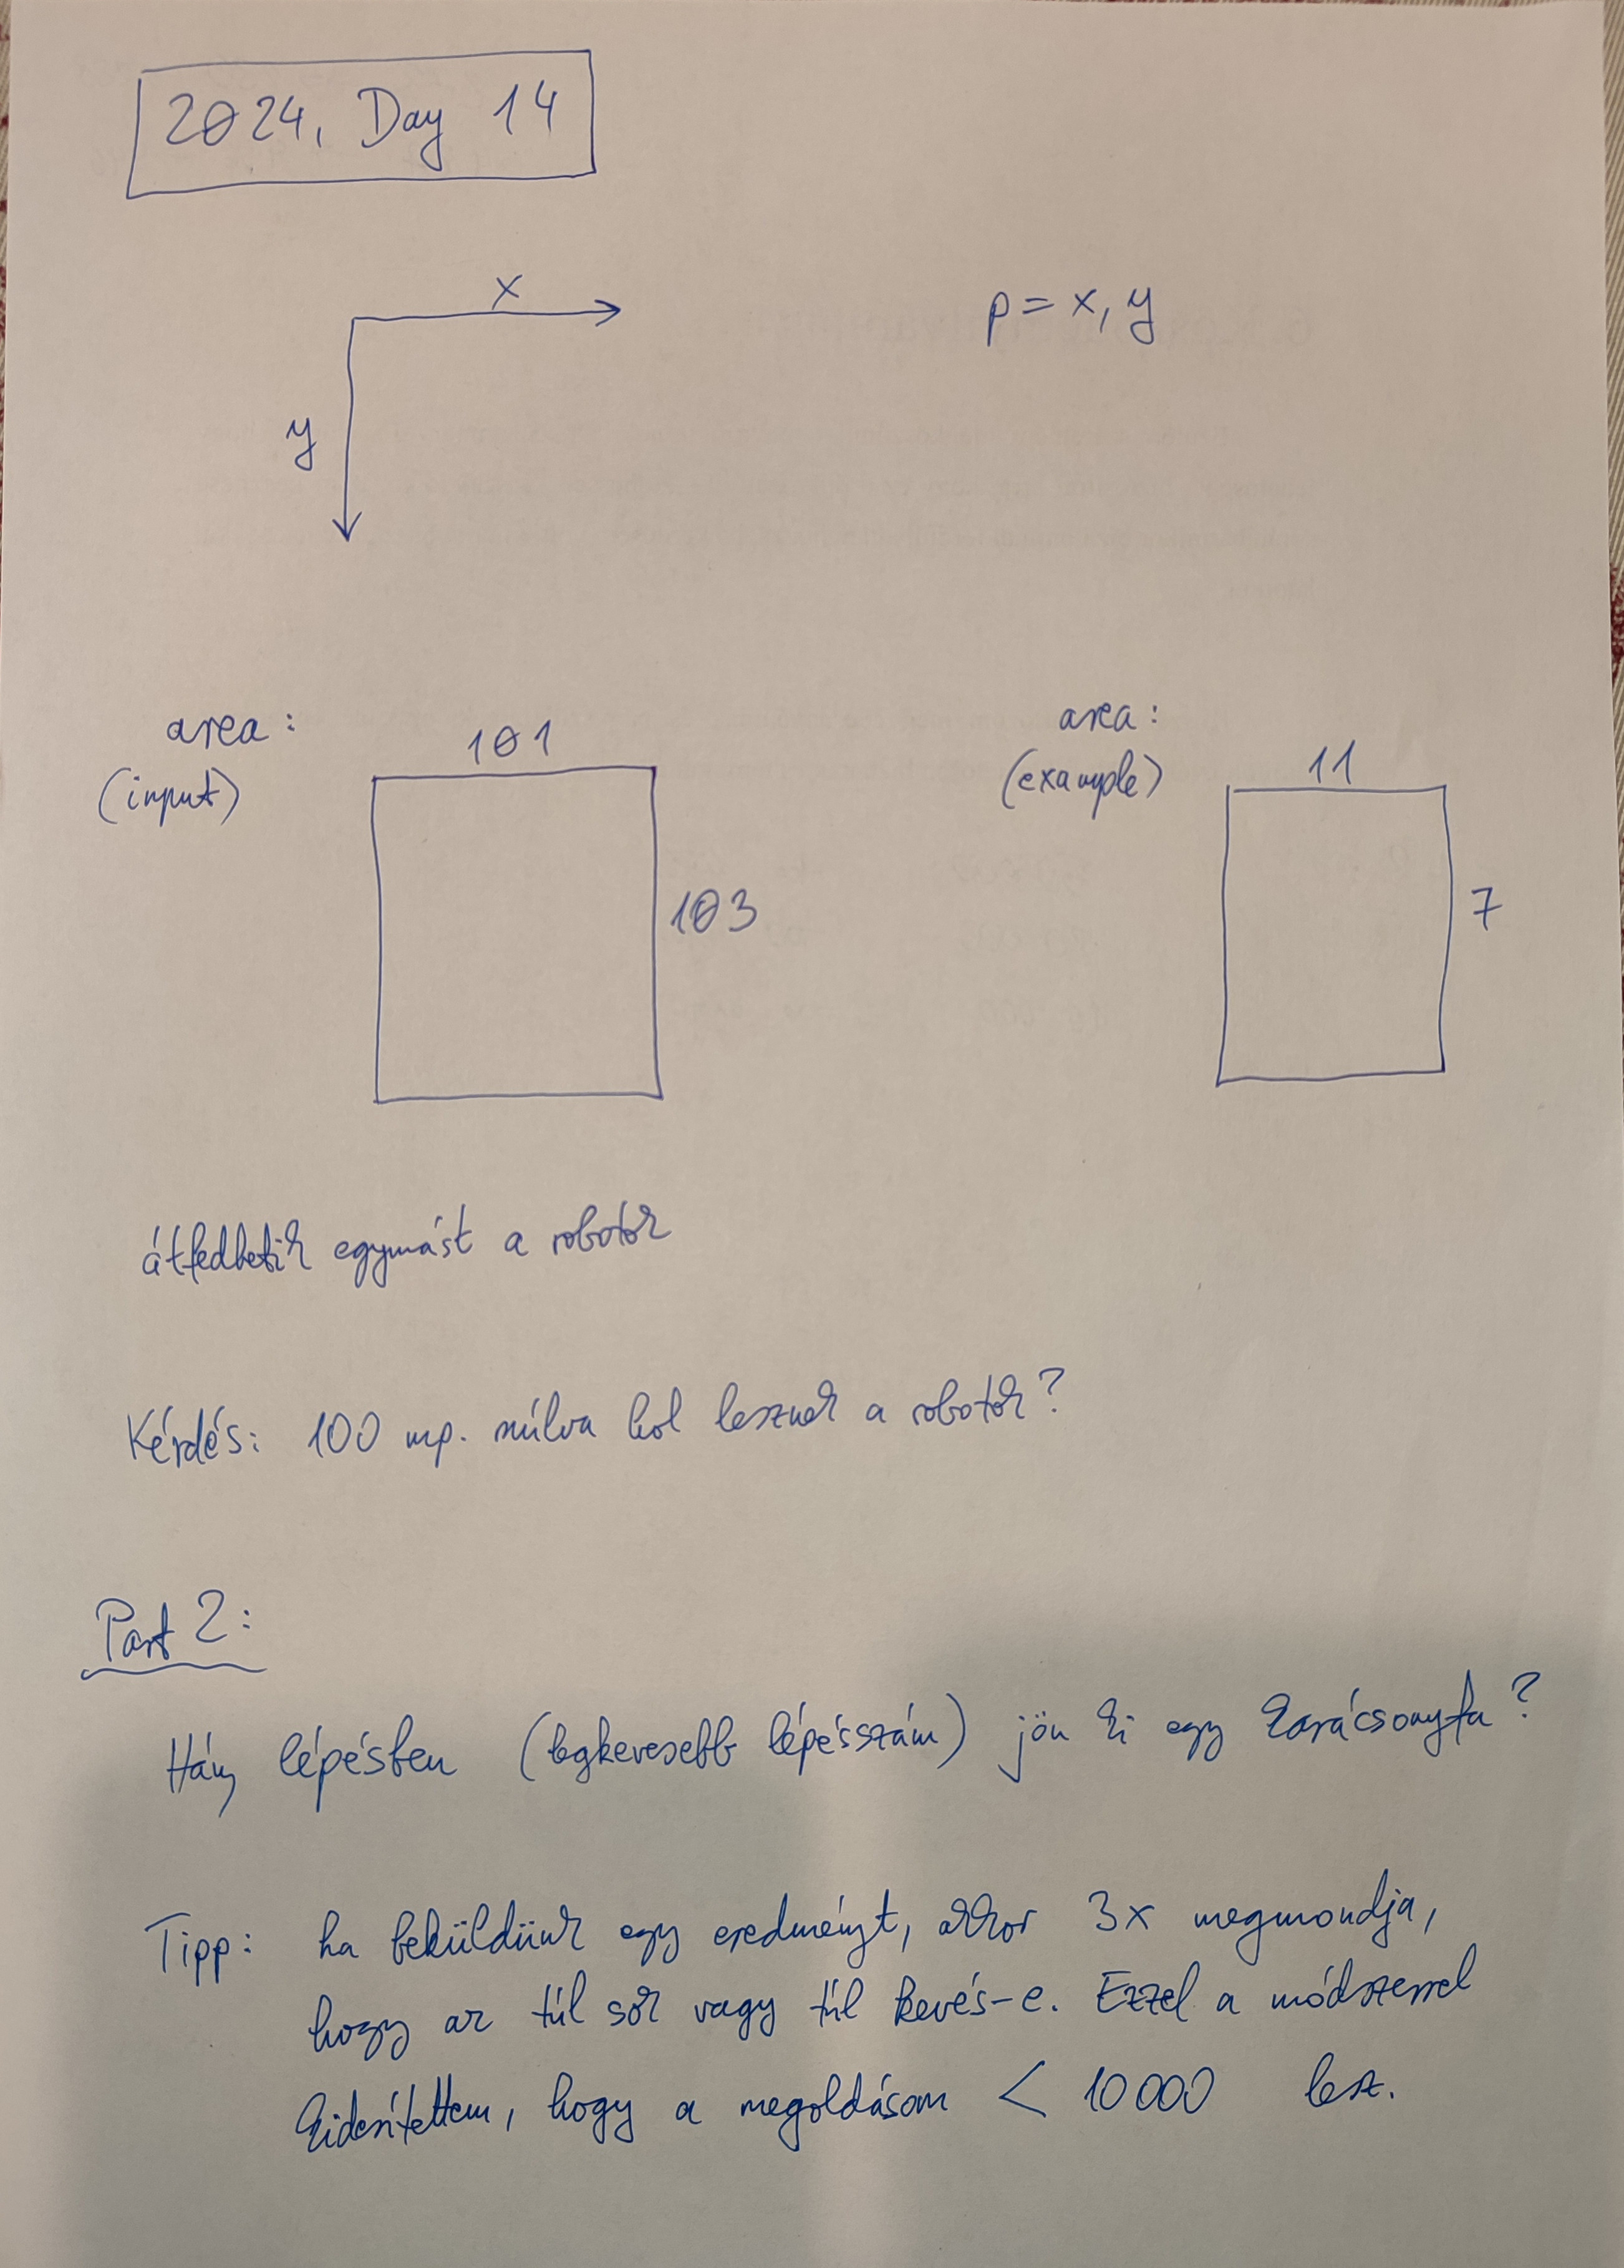 2024, Day 14
x
p = x, y
y
area:
(input)
101
103
area:
(example)
11
7
átfedhetik egymást a robotok
Kérdés: 100 mp. múlva hol lesznek a robotok?
Part 2:
Hány lépésben (legkevesebb lépésszám) jön ki egy karácsonyfa?
Tipp: ha beküldünk egy eredményt, akkor 3x megmondja,
hogy az túl sok vagy túl kevés-e. Ezzel a módszerrel
kiderítettem, hogy a megoldásom < 10000 lesz.